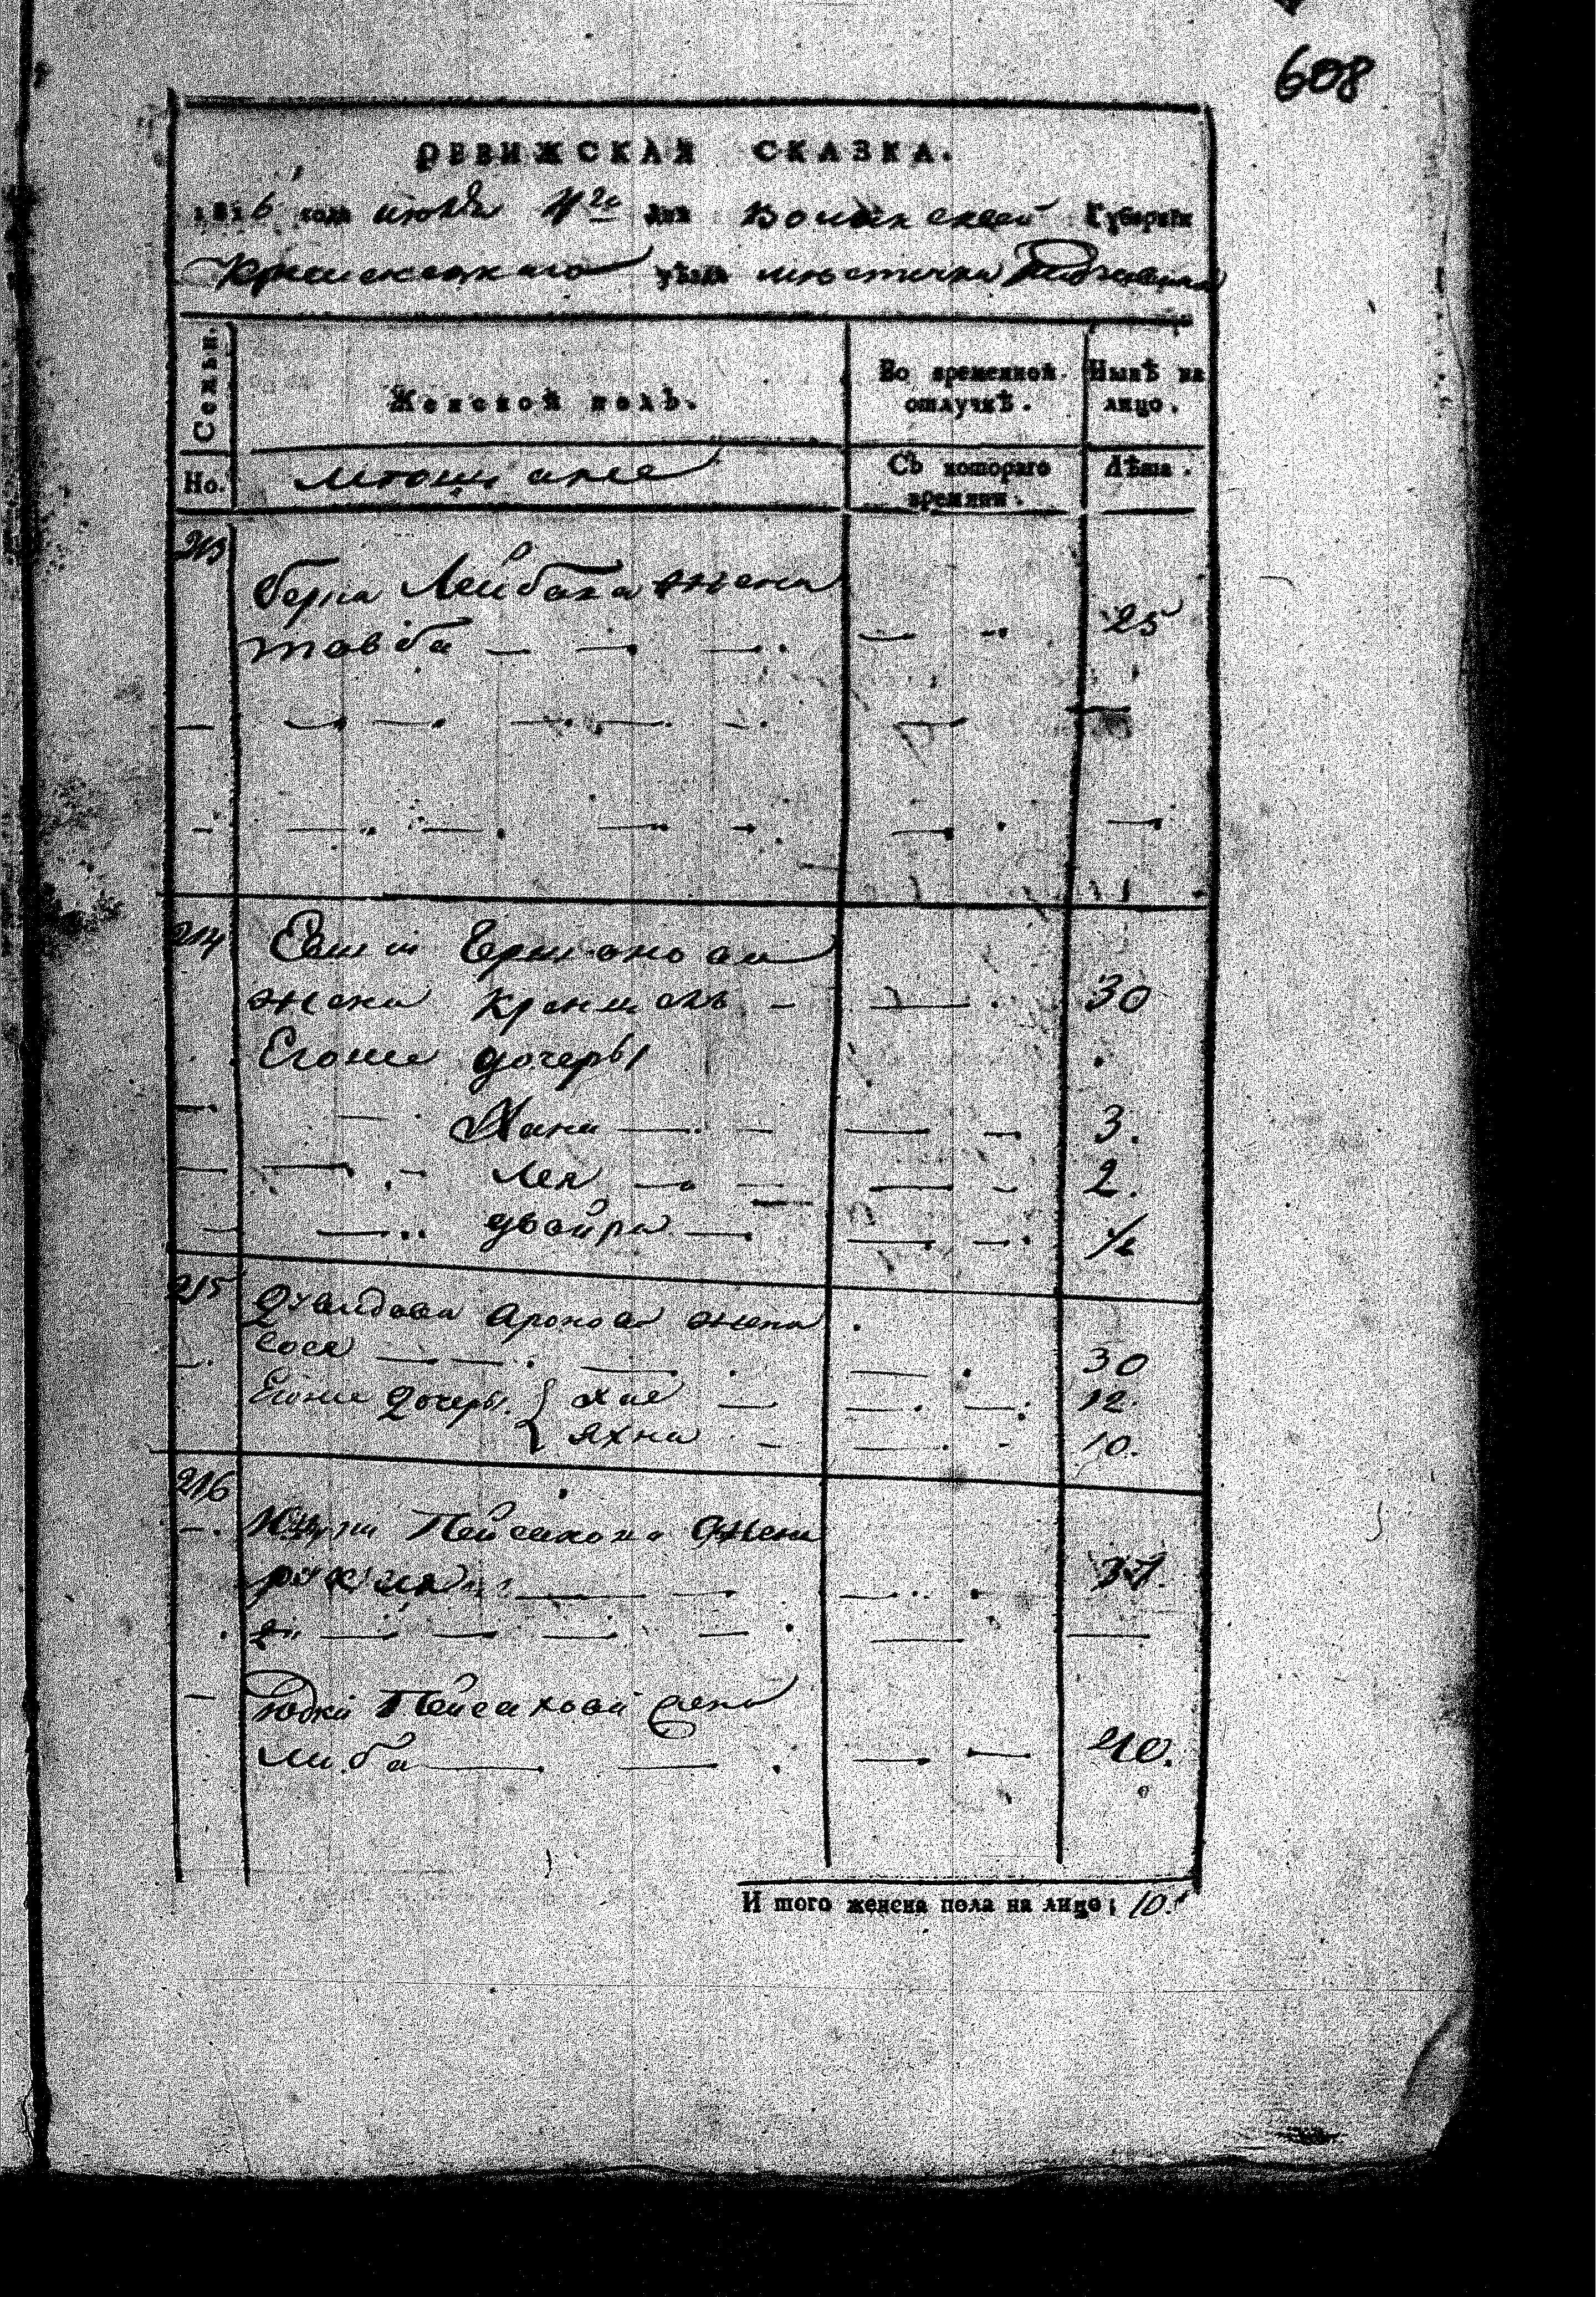 608
РЕВИЖСКАЯ СКАЗКА.
1816 года июля 4го дня Волынской Губернии
Кременецкаго уѣзда мѣстечка
Семьи. Женской полъ. Во временной отлучкѣ. Нынѣ на лицо.
Но. Мѣщане Съ котораго времяни. Лѣта.
213
Берка Лейбова жена
товба — — — — — 25
— — — — — — — —
— — — — — — —
214 Ершонова
жена — — 30
Егоже дочеры
— — Хана — — — — 3.
— — — Лея — — — — 2.
— — двойра — — — 1/2
215 Давидова Аронова жена
— сося — — — — 30
Егоже дочеры { хая — — — 12.
яхна — — — 10.
216
— Пейсахова жена
— — — — 37.
2й — — — — — —
— Юдки Пейсаховой жена
либа — — — — 40.
И того женска пола на лицо; 10.